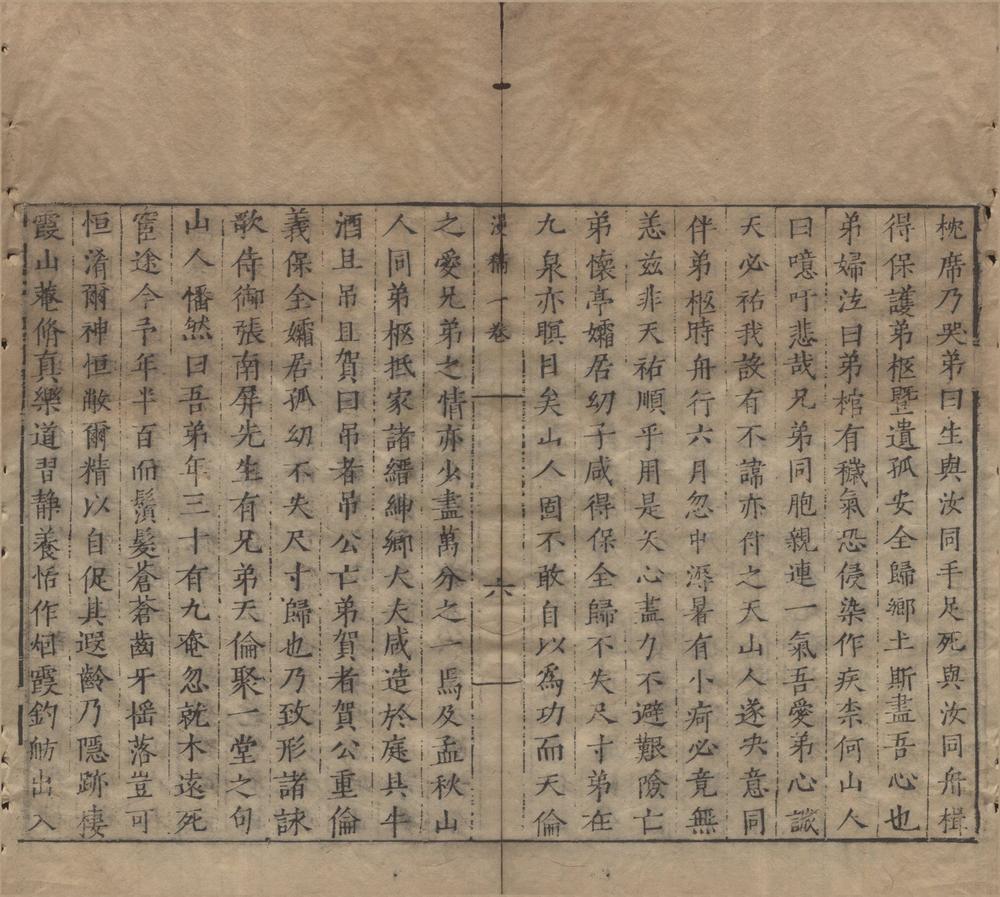 枕席乃哭弟曰生與汝同手足死與汝同舟楫
得保護弟柩暨遺孤安全歸鄉土斯盡吾心也
弟婦泣曰弟棺有穢氣恐侵染作疾柰何山人
曰噫吁悲哉兄弟同胞親連一氣吾愛弟心誠
天必祐我設有不諱亦付之天山人遂决意同
伴弟柩時舟行六月忽中溽暑有小疴必竟無
恙兹非天祐順乎用是矢心盡力不避艱險亡
弟懷亭孀居幼子咸得保全歸不失尺寸弟在
九泉亦瞑目矣山人固不敢自以爲功而天倫
漫稿 一卷 六
之愛兄弟之情亦少盡萬分之一焉及孟秋山
人同弟柩抵家諸縉紳鄉大夫咸造於庭具牛
酒且吊且賀曰吊者吊公亡弟賀者賀公重倫
義保全孀居孤幼不失尺寸歸也乃致形諸誄
歌侍御張南屏先生有兄弟天倫聚一堂之句
山人憣然曰吾弟年三十有九奄忽就木遠死
窀途今予年半百而鬢髮蒼蒼齒牙榣落豈可
恒淆爾神恒敝爾精以自促其遐齡乃隱跡棲
霞山菴脩真樂道習静養恬作烟霞釣舫出入